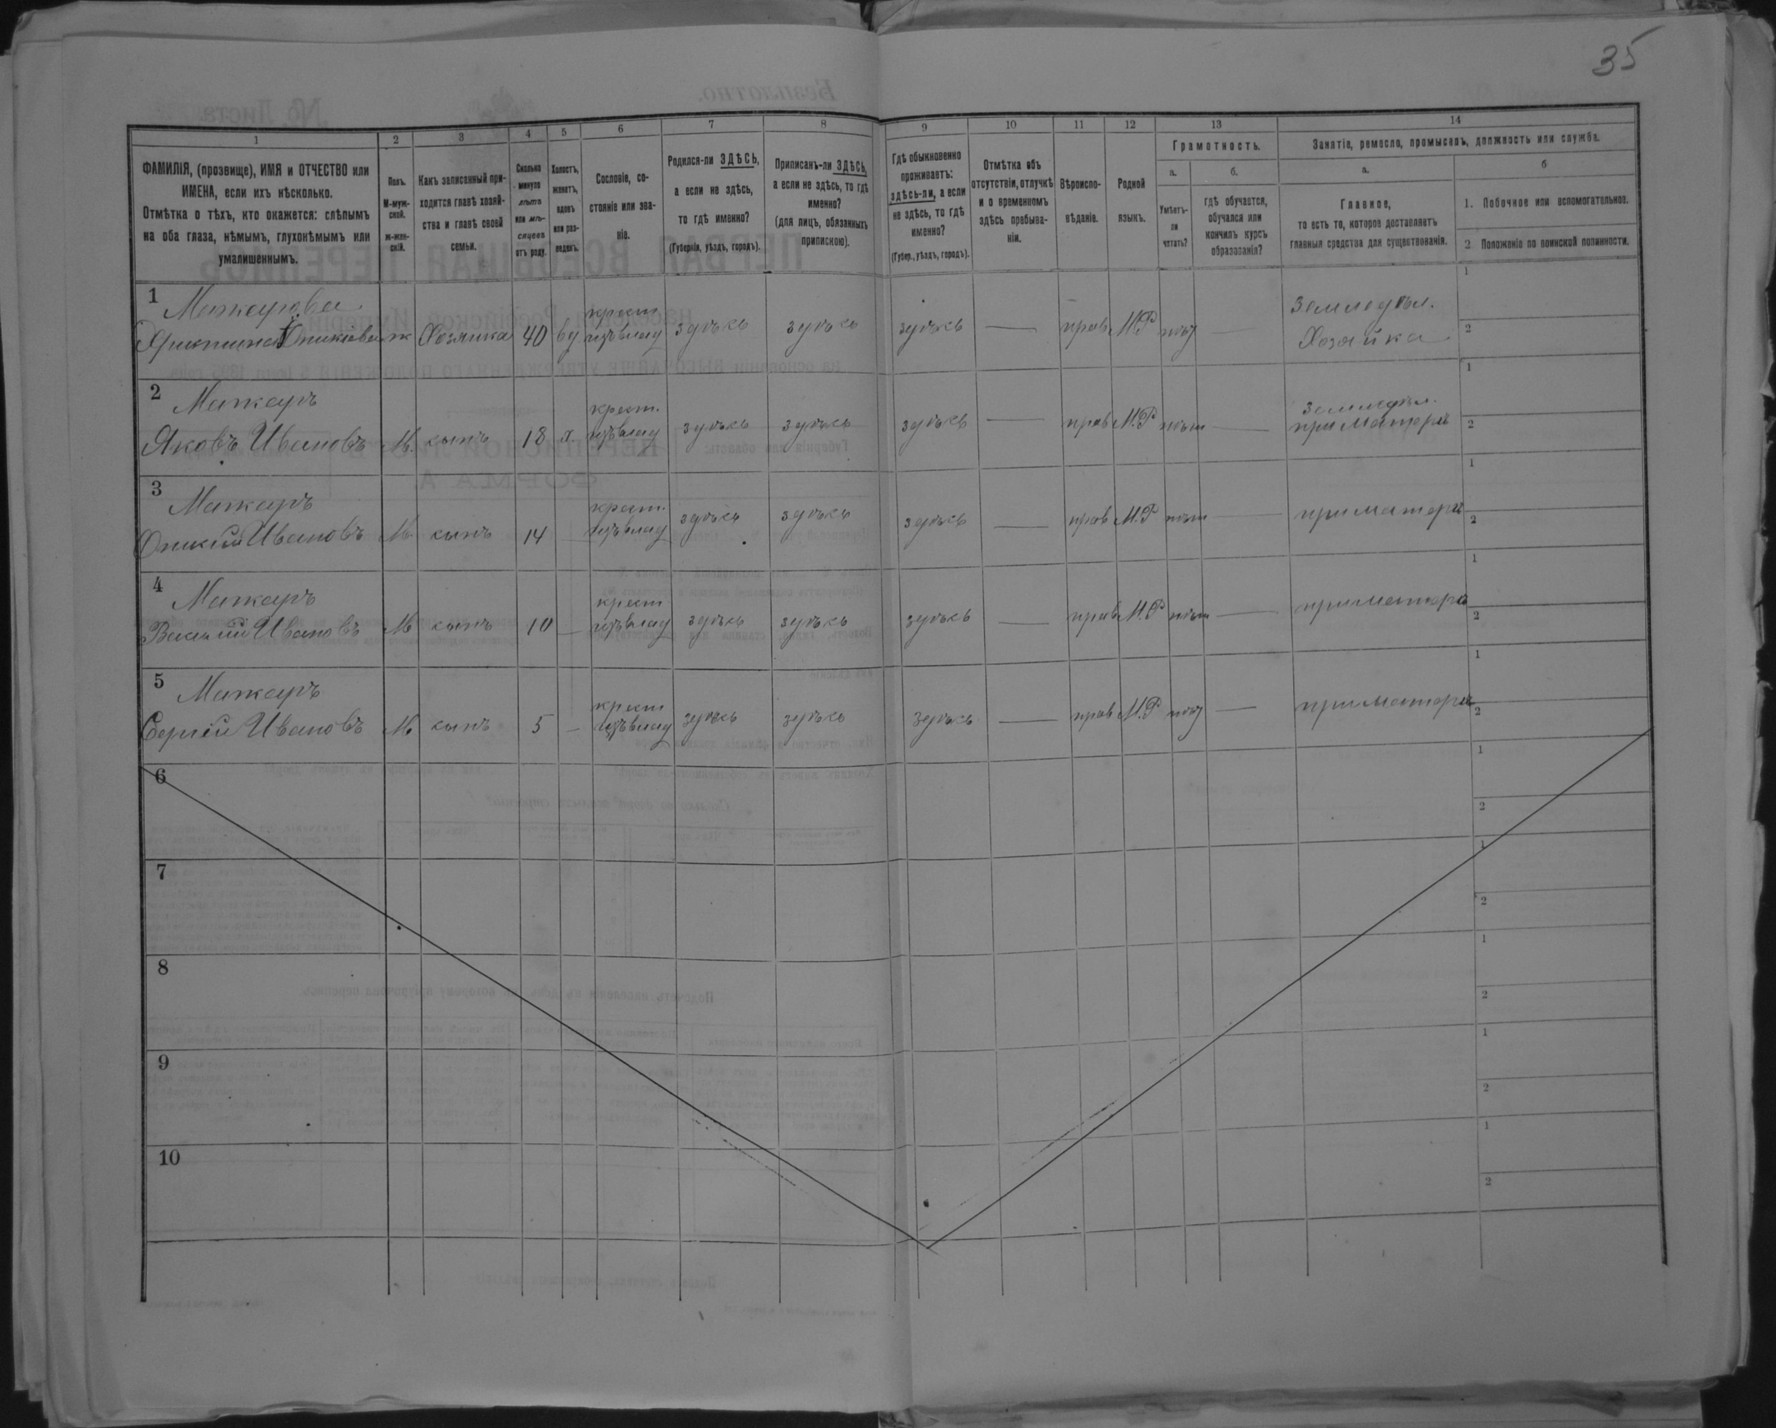 35
1 2 3 4 5 6 7 8 9 10 11 12 13 14
ФАМИЛІЯ, (прозвище), ИМЯ и ОТЧЕСТВО или
ИМЕНА, если ихъ нѣсколько.
Отмѣтка о тѣхъ, кто окажется: слѣпымъ
на оба глаза, нѣмымъ, глухонѣмымъ или
умалишеннымъ.
Полъ.
М-муж-
ской.
ж-жен-
скій.
Какъ записанный при-
ходится главѣ хозяй-
ства и главѣ своей
семьи.
Сколько
минуло
лѣтъ
или мѣ-
сяцевъ
отъ роду.
Холостъ,
женатъ,
вдовъ
или раз-
веденъ.
Сословіе, со-
стояніе или зва-
ніе.
Родился-ли ЗДѢСЬ,
а если не здѣсь,
то гдѣ именно?
(Губернія, уѣздъ, городъ).
Приписанъ-ли ЗДѢСЬ,
а если не здѣсь, то гдѣ
именно?
(для лицъ, обязанныхъ
припискою).
Гдѣ обыкновенно
проживаетъ:
здѣсь-ли, а если
не здѣсь, то гдѣ
именно?
(Губер., уѣздъ, городъ).
Отмѣтка объ
отсутствіи, отлучкѣ
и о временномъ
здѣсь пребыва-
ніи.
Вѣроиспо-
вѣданіе.
Родной
языкъ.
Грамотность.
а.
Умѣетъ-
ли
читать?
б.
гдѣ обучается,
обучался или
кончилъ курсъ
образованія?
Занятіе, ремесло, промыселъ, должность или служба.
а.
Главное,
то есть то, которое доставляетъ
главныя средства для существованія.
б
1. Побочное или вспомогательное.
2 Положеніе по воинской повинности.
1 Макарова крест. Земледѣл. 1
Оникіева ж Хозяйка 40 ву здѣсь здѣсь здѣсь — прав М.Р — Хозяйка 2
2 Макаръ крест. земледѣл. 1
Яковъ Ивановъ М. сынъ 18 х. здѣсь здѣсь здѣсь — прав М.Р — при матери 2
3 Макаръ крест. 1
Оникій Ивановъ М. сынъ 14 здѣсь здѣсь здѣсь — прав М.Р — при матери 2
4 Макаръ крест 1
Василій Ивановъ М сынъ 10 — здѣсь здѣсь здѣсь — прав М.Р — при матери 2
5 Макаръ крест 1
Сергій Ивановъ М сынъ 5 — здѣсь здѣсь здѣсь — прав М.Р — при матери 2
6 1
2
7 1
2
8 1
2
9 1
2
10 1
2